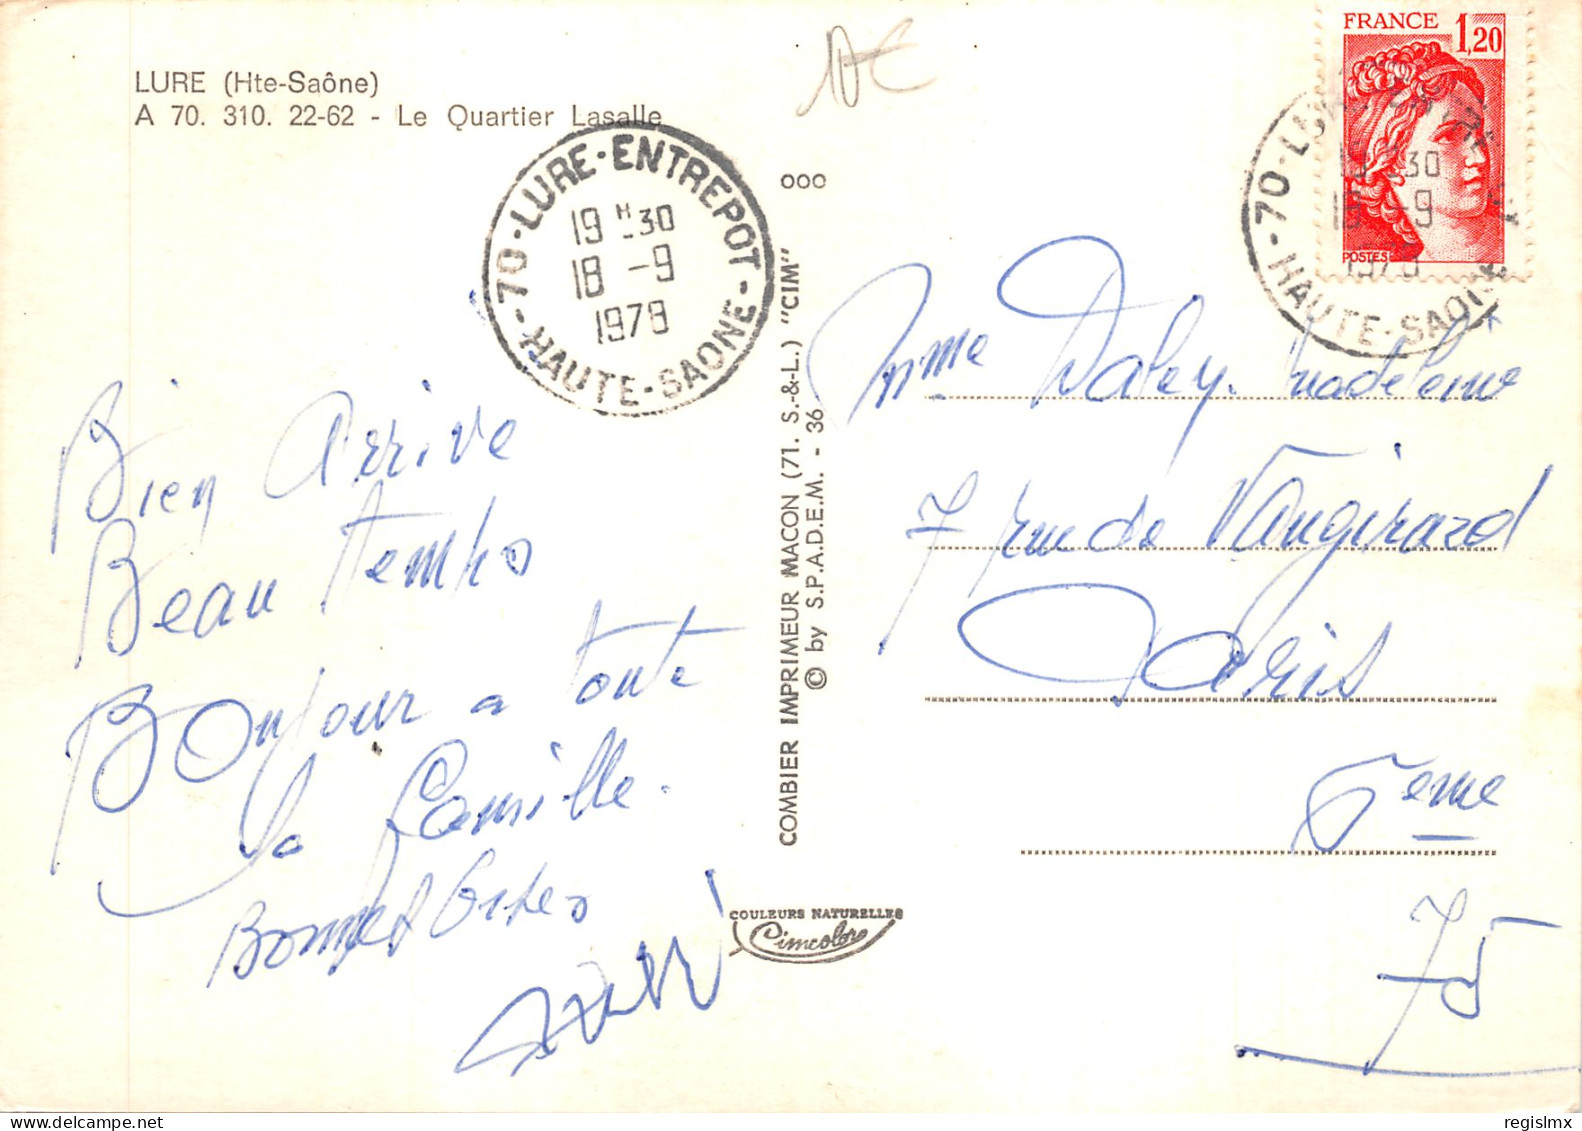 LURE (Hte-Saône)
A 70. 310. 22-62 - Le Quartier Lasalle
70-LURE-ENTREPOT
19 H 30
18 -9
1978
HAUTE-SAONE
Bien Arrive
Beau temps
Bonjour a toute
la Famille.
Bonnes
COMBIER IMPRIMEUR MACON (71. S.-&-L.) "CIM"
© by S.P.A.D.E.M. - 36
ooo
COULEURS NATURELLES
Cimcolor
FRANCE 1,20
POSTES
70-LURE
30
-9
HAUTE-SAONE
Mme Daley Madeleine
7 rue de Vaugirard
Paris
6eme
75
regislmx